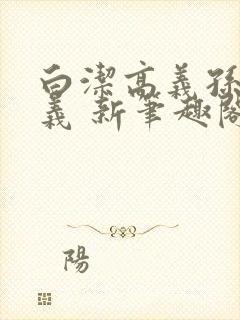 白潔高義孫
義 新筆趣閣
陽